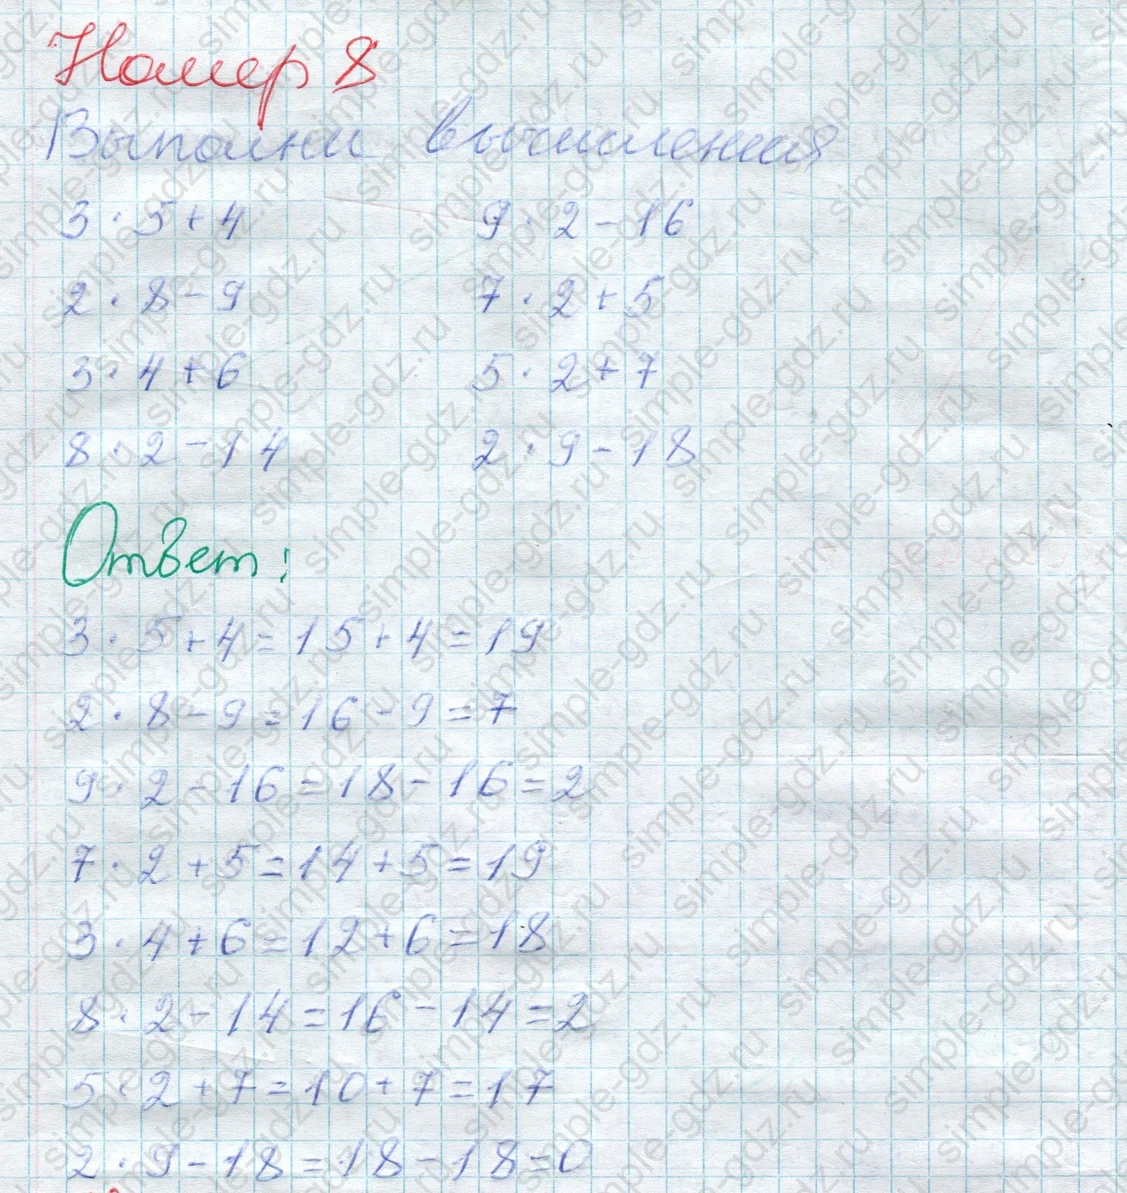 Номер 8
Выполни вычисления
3 · 5 + 4 9 · 2 - 16
2 · 8 - 9 7 · 2 + 5
3 · 4 + 6 5 · 2 + 7
8 · 2 - 14 2 · 9 - 18
Ответ:
3 · 5 + 4 = 15 + 4 = 19
2 · 8 - 9 = 16 - 9 = 7
9 · 2 - 16 = 18 - 16 = 2
7 · 2 + 5 = 14 + 5 = 19
3 · 4 + 6 = 12 + 6 = 18
8 · 2 - 14 = 16 - 14 = 2
5 · 2 + 7 = 10 + 7 = 17
2 · 9 - 18 = 18 - 18 = 0
simple-gdz.ru